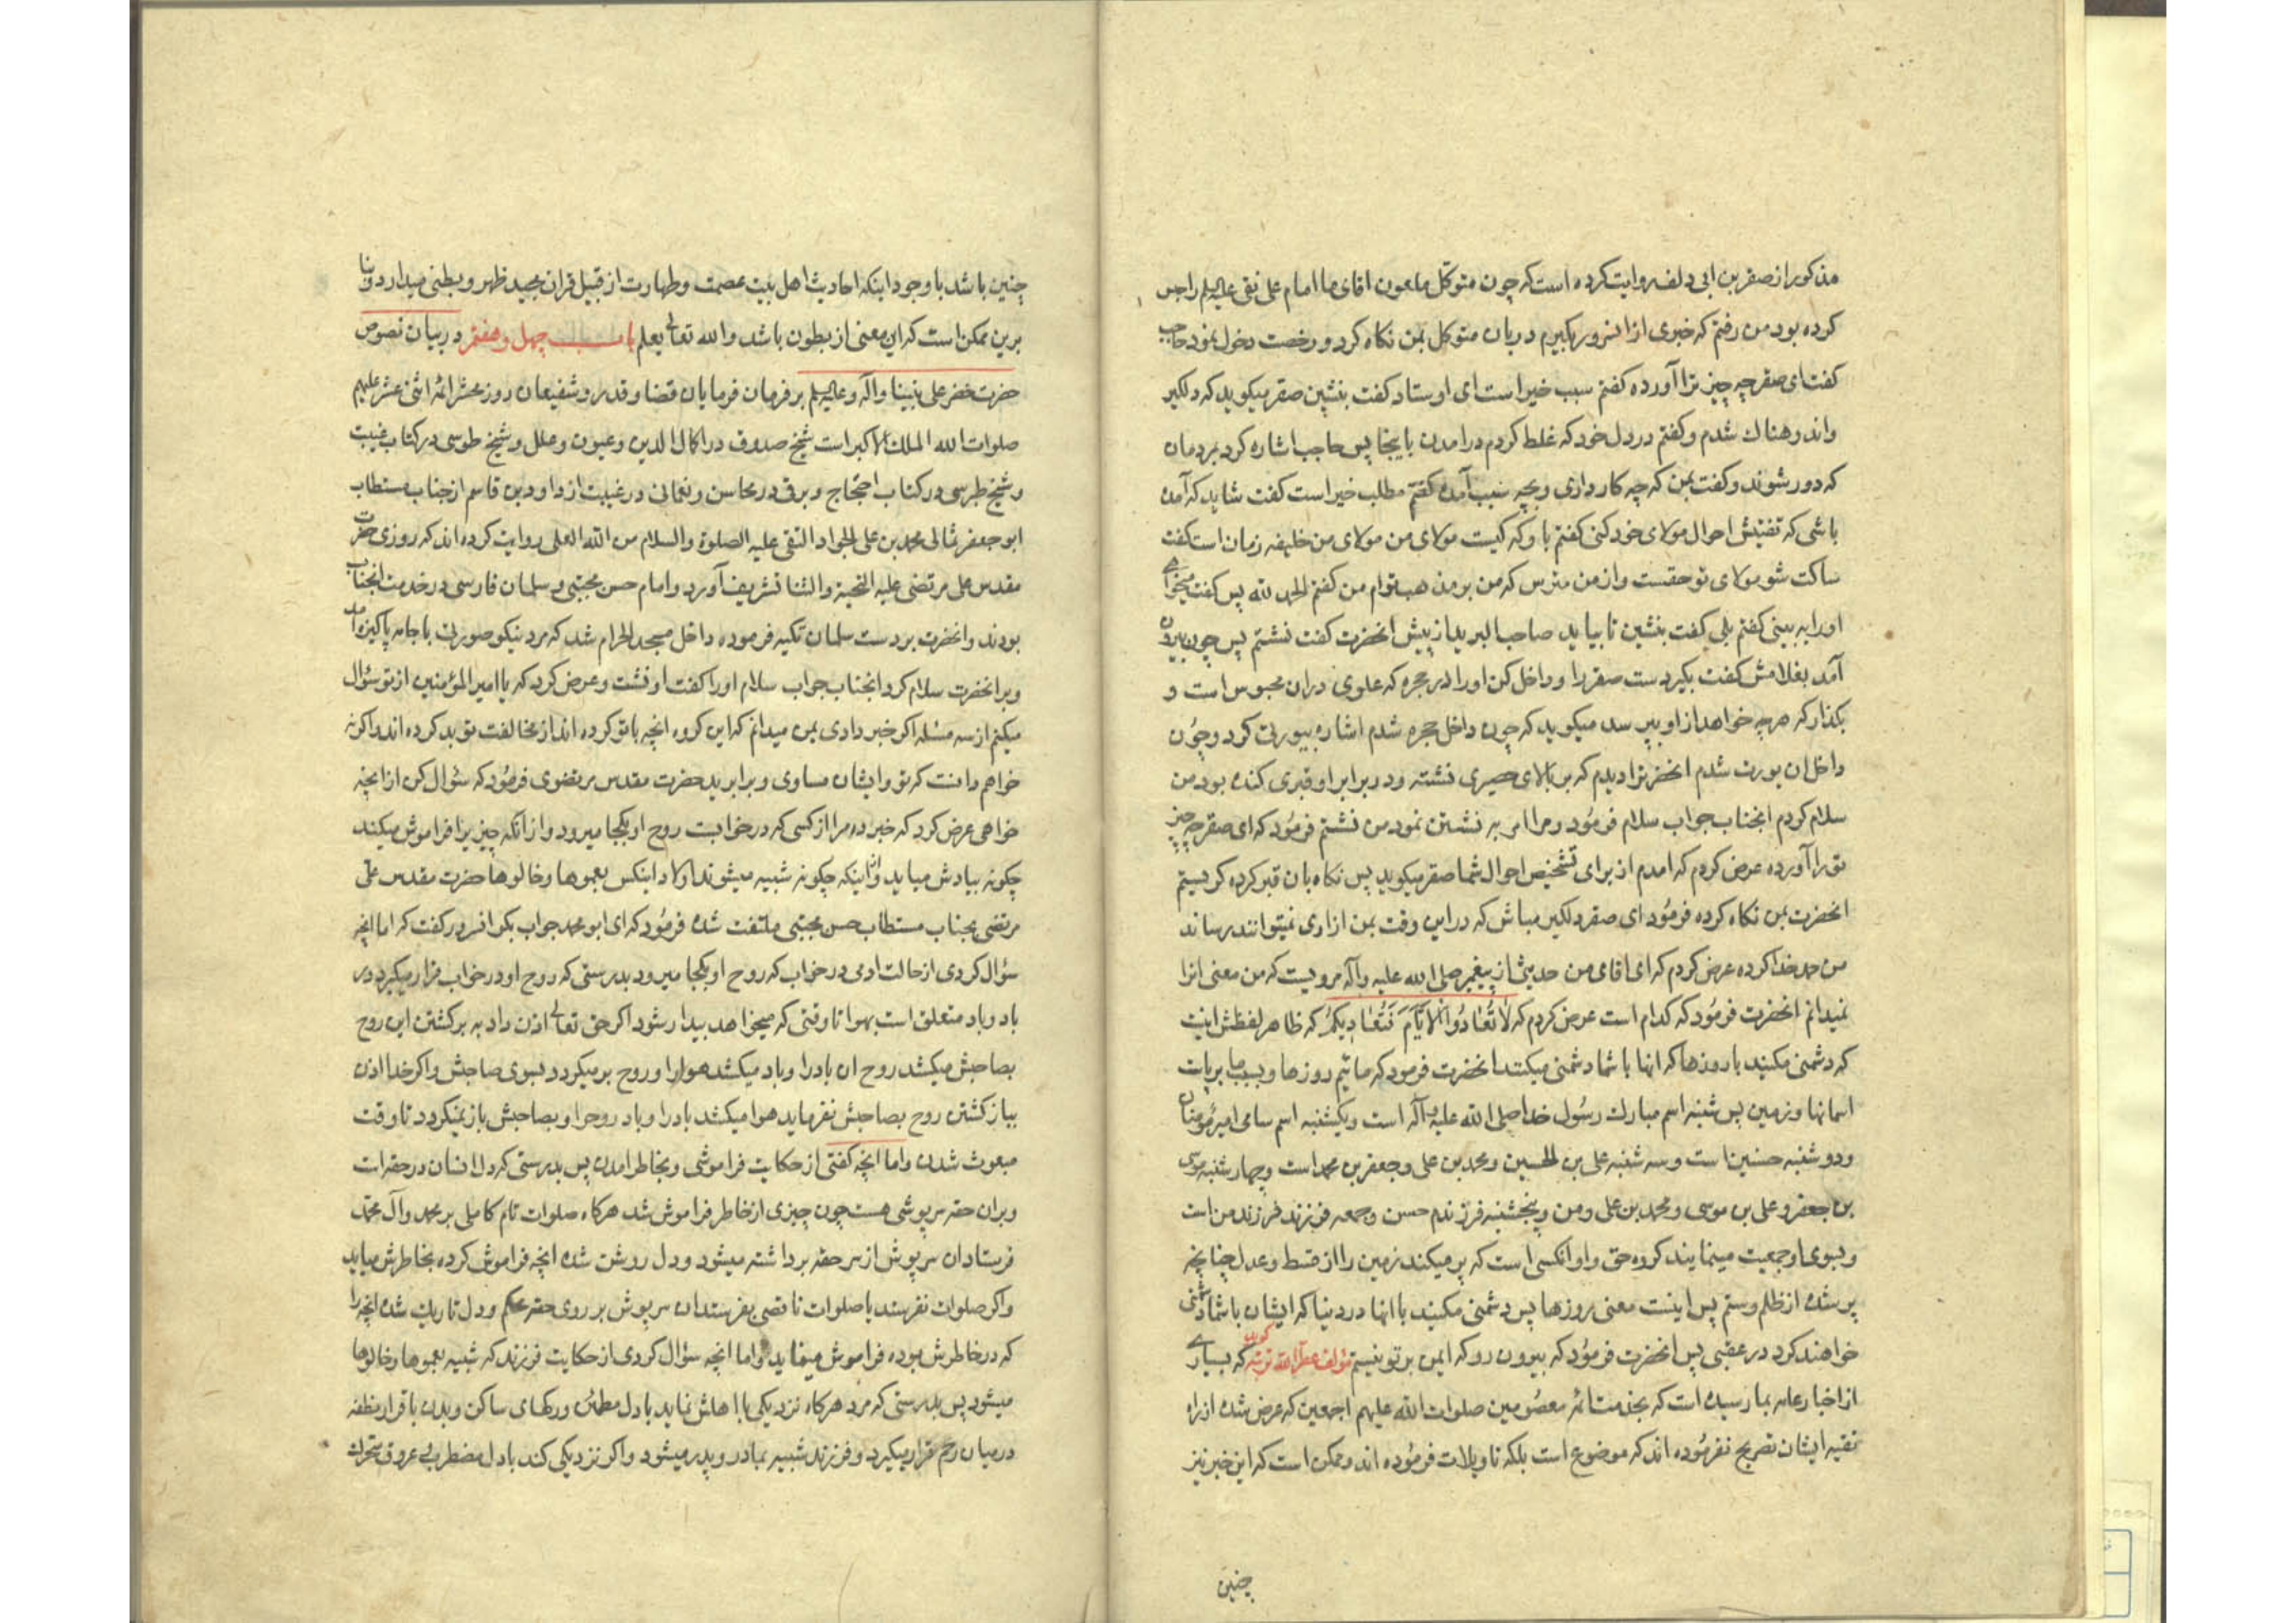 مذکور از صقر بن ابی دلف روایت کرده است که چون متوکل ملعون اقای ما امام علی نقی علیه السلم را حبس
کرده بود من رفتم که خبری از انسرور بگیرم دربان متوکل بمن نکاه کرد و رخصت دخول نمود حاجب
کفت ای صقر چه چیز ترا آورده کفتم سبب خیر است ای اوستاد کفت بنشین صقر میکوید که دلکیر
واندوهناک شدم و کفتم در دل خود که غلط کردم در امدن باینجا پس حاجب اشاره کرد بمردمان
که دور شوند و کفت بمن که چه کار داری و بچه سبب آمدهٔ کفتم مطلب خیر است کفت شاید که آمده
باشی که تفتیش احوال مولای خود کنی کفتم باو که کیست مولای من مولای من خلیفه زمان است کفت
ساکت شو مولای تو حقست و از من مترس که من بر مذهب توام من کفتم الحمد لله پس کفت میخواهی
او را به بینی کفتم بلی کفت بنشین تا بیاید صاحب البرید از پیش انحضرت کفت نشستم پس چون بیرون
آمد بغلامش کفت بکیر دست صقر را و داخل کن او را در حجره که علوی دران محبوس است و
بکذار که هر چه خواهد از او بپرسد میکوید که چون داخل حجره شدم اشاره بیورتی کرد و چون
داخل ان یورت شدم انحضرترا دیدم که بر بالای حصیری نشسته و در برابر او قبری کنده بود من
سلام کردم انجناب جواب سلام فرمود و مرا امر به نشستن نمود من نشستم فرمود که ای صقر چه چیز
تو را آورده عرض کردم که امدم از برای تشخیص احوال شما صقر میکوید پس نکاه بان قبر کرده کریستم
انحضرت بمن نکاه کرده فرمود ای صقر دلکیر مباش که در این وقت بمن ازاری نمیتوانند رساند
من حمد خدا کرده عرض کردم که ای اقای من حدیثی از پیغمبر صلی الله علیه وآله مرویست که من معنی انرا
نمیدانم انحضرت فرمود که کدام است عرض کردم که لا تُعادُوا الاَیّامَ فَتُعادِیکُم که ظاهر لفظش اینست
که دشمنی مکنید با روزها که انها با شما دشمنی میکنند انحضرت فرمود که مائیم روزها و بسبب ما برپاست
اسمانها و زمین پس شنبه اسم مبارک رسول خدا صلی الله علیه وآله است و یکشنبه اسم سامی امیر مؤمنان
و دوشنبه حسنین است و سه شنبه علی بن الحسین و محمد بن علی و جعفر بن محمد است و چهار شنبه موسی
بن جعفر و علی بن موسی و محمد بن علی و من و پنجشنبه فرزندم حسن و جمعه فرزند فرزند من است
و بسوی او جمعیت مینمایند کروه حق و او انکسی است که پر میکند زمین را از قسط و عدل چنانچه
پر شده از ظلم و ستم پس اینست معنی روزها پس دشمنی مکنید با انها در دنیا که ایشان با شما دشمنی
خواهند کرد در عقبی پس انحضرت فرمود که بیرون رو که ایمن بر تو نیستم مؤلف عطر الله تربته کوید که بسیاری
از اخبار عامه بما رسیده است که بخدمت ائمه معصومین صلوات الله علیهم اجمعین که عرض شده از راه
تقیه ایشان تصریح نفرموده اند که موضوع است بلکه تاویلات فرموده اند و ممکن است که این خبر نیز
چنین
چنین باشد با وجود اینکه احادیث اهل بیت عصمت و طهارت از قبیل قران مجید ظهر و بطنی میدارد و بنا
برین ممکن است که این معنی از بطون باشد والله تعالی یعلم باب چهل و هفتم در بیان نصوص
حضرت خضر علی نبینا وآله وعلیه السلم بر فرمان فرمایان قضا و قدر و شفیعان روز محشر ائمه اثنی عشر علیهم
صلوات الله الملک الاکبر است شیخ صدوق در اکمال الدین و عیون و علل و شیخ طوسی در کتاب غیبت
و شیخ طبرسی در کتاب احتجاج و برقی در محاسن و نعمانی در غیبت از داود بن قاسم از جناب مستطاب
ابو جعفر ثانی محمد بن علی الجواد التقی علیه الصلوة والسلام من الله العلی روایت کرده اند که روزی حضرت
مقدس علی مرتضی علیه التحیة والثنا تشریف آورد و امام حسن مجتبی و سلمان فارسی در خدمت انجناب
بودند و انحضرت بر دست سلمان تکیه فرموده داخل مسجد الحرام شد که مرد نیکو صورتی با جامه پاکیزه امد
و بر انحضرت سلام کرد انجناب جواب سلام او را کفت او نشست و عرض کرد که یا امیر المؤمنین از تو سؤال
میکنم از سه مسئله اکر خبر دادی بمن میدانم که این کروه انچه با تو کرده اند از مخالفت تو بد کرده اند و اکر نه
خواهم دانست که تو و ایشان مساوی و برابرید حضرت مقدس مرتضوی فرمود که سؤال کن از انچه
خواهی عرض کرد که خبر ده مرا از کسی که در خوابست روح او بکجا میرود و از انکه چیزیرا فراموش میکند
چکونه بیادش میاید و از اینکه چکونه شبیه میشوند اولاد اینکس بعموها و خالوها حضرت مقدس علی
مرتضی بجناب مستطاب حسن مجتبی ملتفت شده فرمود که ای ابو محمد جواب بکو انسرور کفت که اما انچه
سؤال کردی از حالت ادمی در خواب که روح او بکجا میرود بدرستی که روح او در خواب قرار میکیرد در
باد و باد متعلق است بهوا تا وقتی که میخواهد بیدار شود اکر حق تعالی اذن داد به برکشتن این روح
بصاحبش میکشد روح ان باد را و باد میکشد هوا را و روح بر میکردد بسوی صاحبش و اکر خدا اذن
بباز کشتن روح بصاحبش نفرماید هوا میکشد باد را و باد روح را و بصاحبش باز نمیکردد تا وقت
مبعوث شدن و اما انچه کفتی از حکایت فراموشی و بخاطر امدن پس بدرستی که دل انسان در حقه است
و بران حقه سرپوشی هست چون چیزی از خاطر فراموش شد هرکاه صلوات تام کاملی بر محمد وآل محمد
فرستاد ان سرپوش از سر حقه برداشته میشود و دل روشن شده انچه فراموش کرده بخاطرش میاید
و اکر صلوات نفرستد یا صلوات ناقصی بفرستد ان سرپوش بر روی حقه محکم و دل تاریک شده انچه را
که در خاطرش بوده فراموش مینماید و اما انچه سؤال کردی از حکایت فرزند که شبیه بعموها و خالوها
میشود پس بدرستی که مرد هرکاه نزدیکی با اهلش نماید با دل مطمئن و رکهای ساکن و بدن باقرار نطفه
در میان رحم قرار میکیرد و فرزند شبیه بمادر و پدر میشود و اکر نزدیکی کند با دل مضطربی عروق متحرک